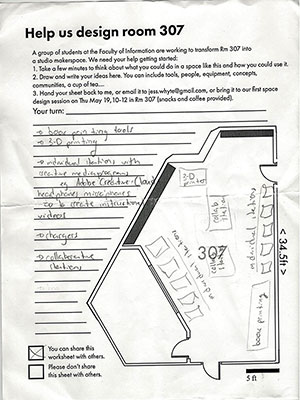 Help us design room 307
A group of students at the Faculty of Information are working to transform Rm 307 into
a studio makespace. We need your help getting started:
1. Take a few minutes to think about what you could do in a space like this and how you could use it.
2. Draw and write your ideas here. You can include tools, people, equipment, concepts,
communities, a cup of tea....
3. Hand your sheet back to me, or email it to jess.whyte@gmail.com, or bring it to our first space
design session on Thu May 19, 10-12 in Rm 307 (snacks and coffee provided).
Your turn:
→ book printing tools
→ 3-D printing
→ individual stations with
creative media programs
eg Adobe Creative Cloud
headphones microphones
to create instruction
videos
→ chargers
→ collaborative
stations
3-D
printer
collab
station
307
collab
station
individual stations
individual stations
book printing
< 34.5ft >
5 ft
You can share this
worksheet with others.
Please don't share
this sheet with others.